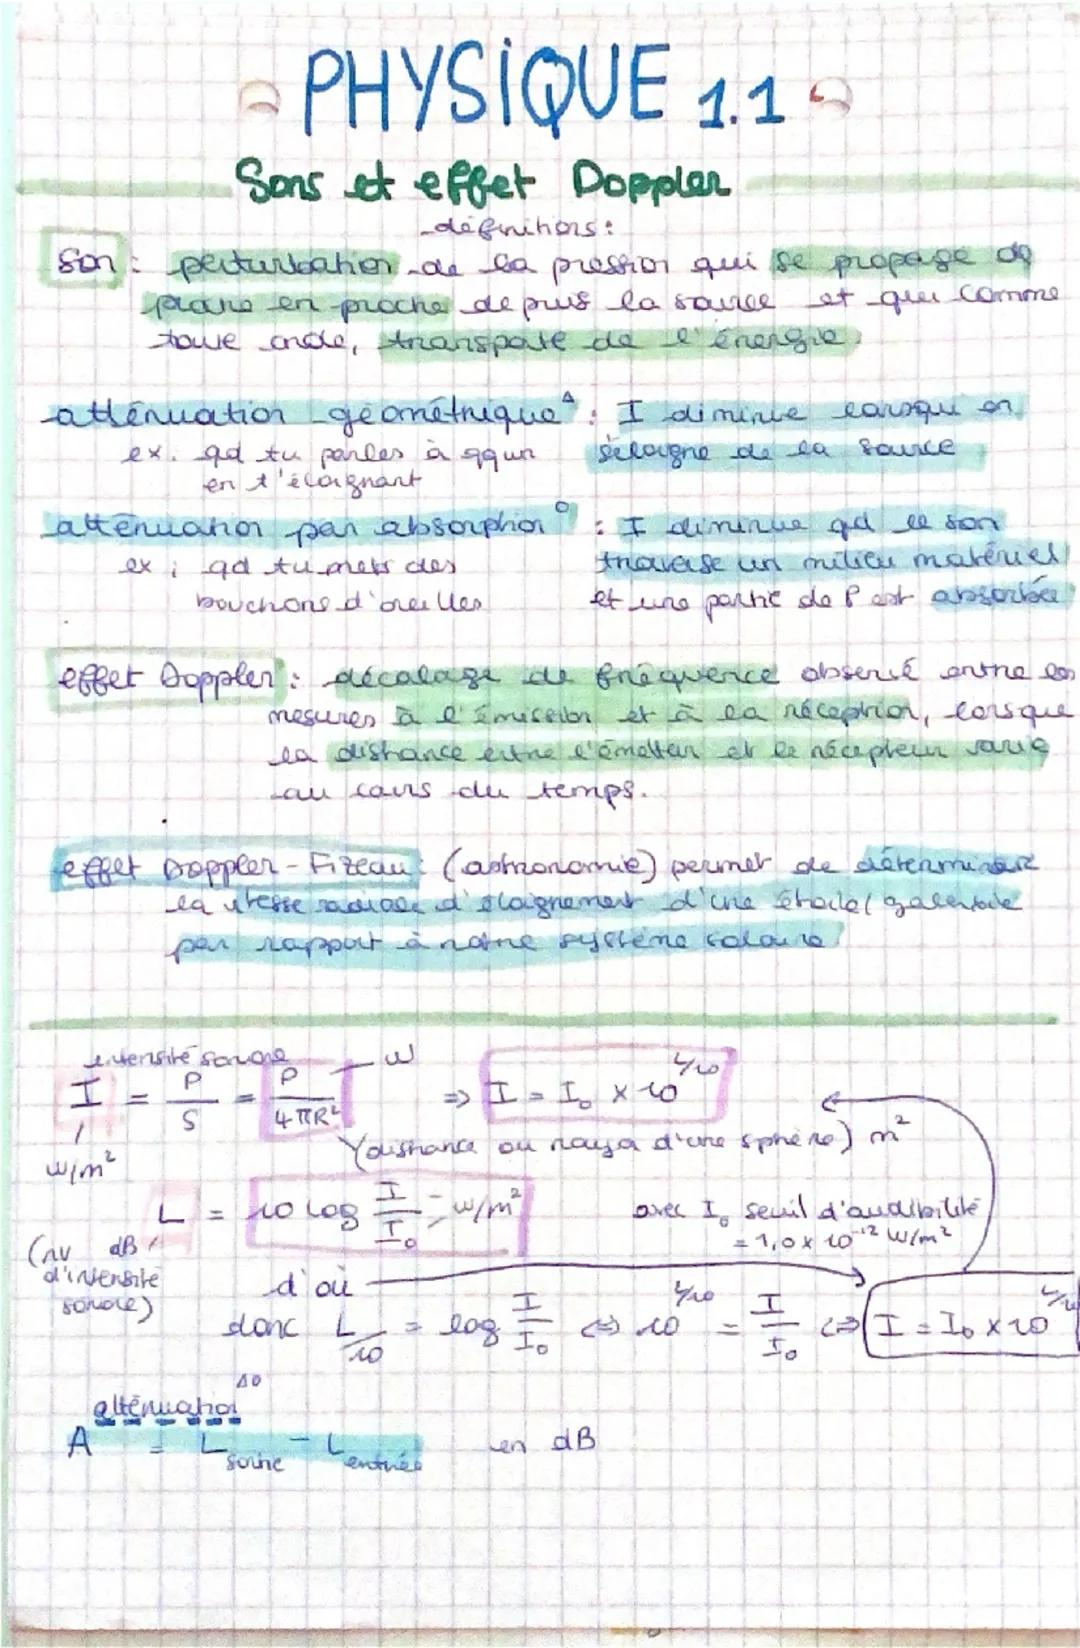 PHYSIQUE 1.1
Sons et effet Doppler
définitions :
Son : perturbation de la pression qui se propage de
proche en proche depuis la source et qui comme
toute onde, transporte de l'énergie.
atténuation géométrique Δ : I diminue lorsqu'on
ex. qd tu parles à qqun s'éloigne de la source
en t'éloignant
atténuation par absorption ○ : I diminue qd le son
ex : qd tu mets des traverse un milieu matériel
bouchons d'oreilles et une partie de P est absorbée
effet Doppler : décalage de fréquence observé entre les
mesures à l'émission et à la réception, lorsque
la distance entre l'émetteur et le récepteur varie
au cours du temps.
effet Doppler-Fizeau : (astronomie) permet de déterminer
la vitesse radiale d'éloignement d'une étoile/galaxie
par rapport à notre système solaire
intensité sonore
I = P/S = P/4πR² W ⇒ I = I₀ × 10^L/10
W/m² (distance ou rayon d'une sphère) m²
L = 10 log I/I₀ = W/m² avec I₀ seuil d'audibilité
= 1,0 × 10⁻¹² W/m²
(nv dB
d'intensité
sonore)
d'où
donc L/10 = log I/I₀ ⇔ 10^L/10 = I/I₀ ⇔ I = I₀ × 10^L/10
atténuation Δ○
A = L sortie - L entrée en dB